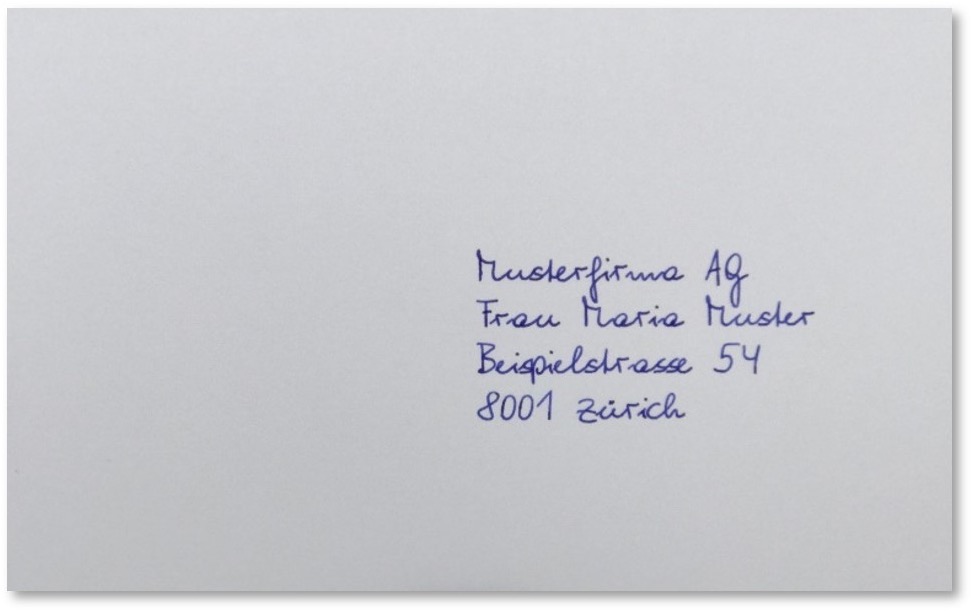 Musterfirma AG
Frau Maria Muster
Beispielstrasse 54
8001 Zürich